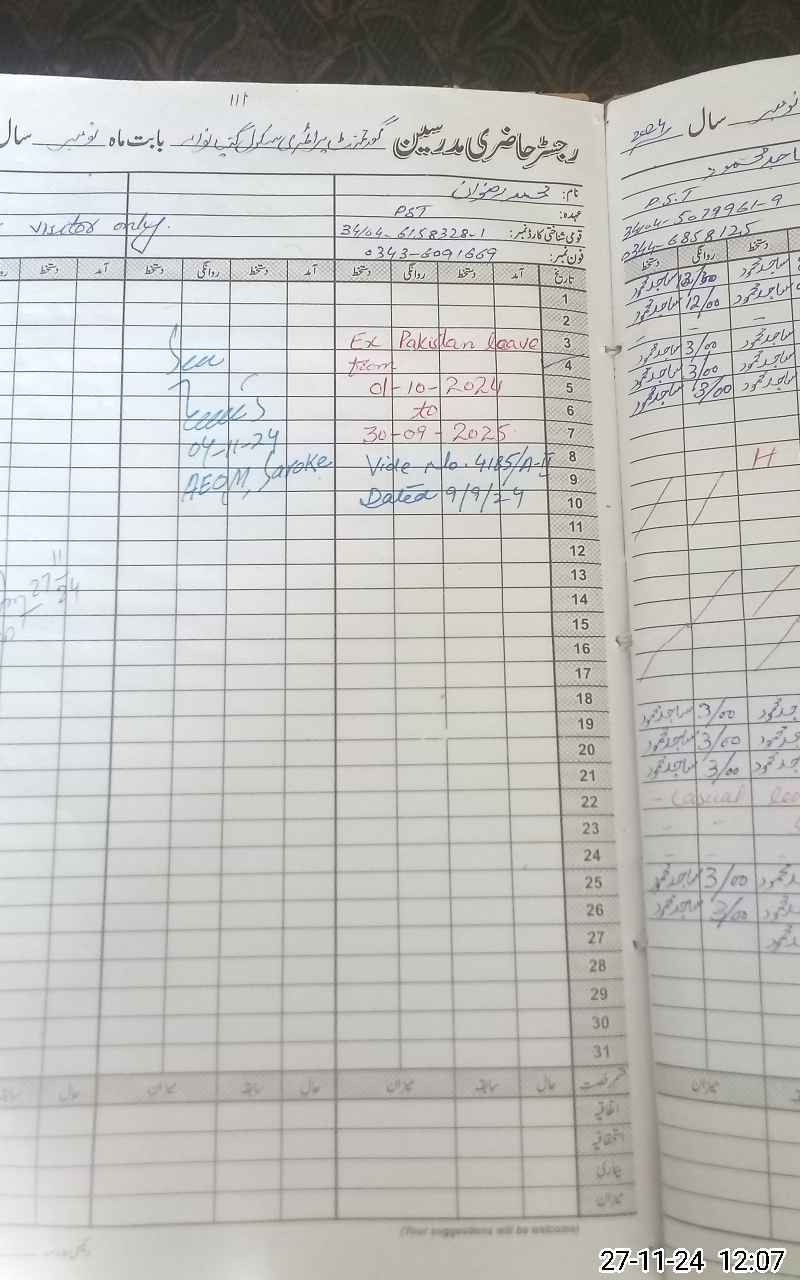 111
رجسٹر حاضری مدرسین گورنمنٹ پرائمری سکول بابت ماہ نومبر سال
نام: محمد رضوان
عہدہ: PST
قومی شناختی کارڈ نمبر: 34104-6158328-1
فون نمبر: 0343-6091669
visitor only.
تاریخ آمد دستخط روانگی دستخط آمد دستخط روانگی دستخط آمد دستخط
1
2
3 Ex Pakistan leave
4 from
5 01-10-2024
6 to
7 30-09-2025
8 Vide No. 4185/A-II
9
10 Dated 9/9/24
Seen
04-11-24
AEOM, Saroke
11
12
13
14
15
16
17
18
19
20
21
22
23
24
25
26
27
28
29
30
31
27-11-24
قسم رخصت حال سابقہ میزان حال سابقہ میزان حال سابقہ
اتفاقیہ
استحقاقیہ
بیماری
میزان
(Your suggestions will be welcome)
نومبر سال 2024
ساجد محمود
P.S.T
34104-5079961-9
0344-6858125
دستخط روانگی دستخط
ساجد محمود 12/00 ساجد محمود
ساجد محمود 12/00 ساجد محمود
ساجد محمود 3/00 ساجد محمود
ساجد محمود 3/00 ساجد محمود
ساجد محمود 3/00 ساجد محمود
H
ساجد محمود 3/00 ساجد محمود
ساجد محمود 3/00 ساجد محمود
ساجد محمود 3/00 ساجد محمود
- Casual
ساجد محمود 3/00 ساجد محمود
ساجد محمود 3/00 ساجد محمود
میزان
27-11-24 12:07